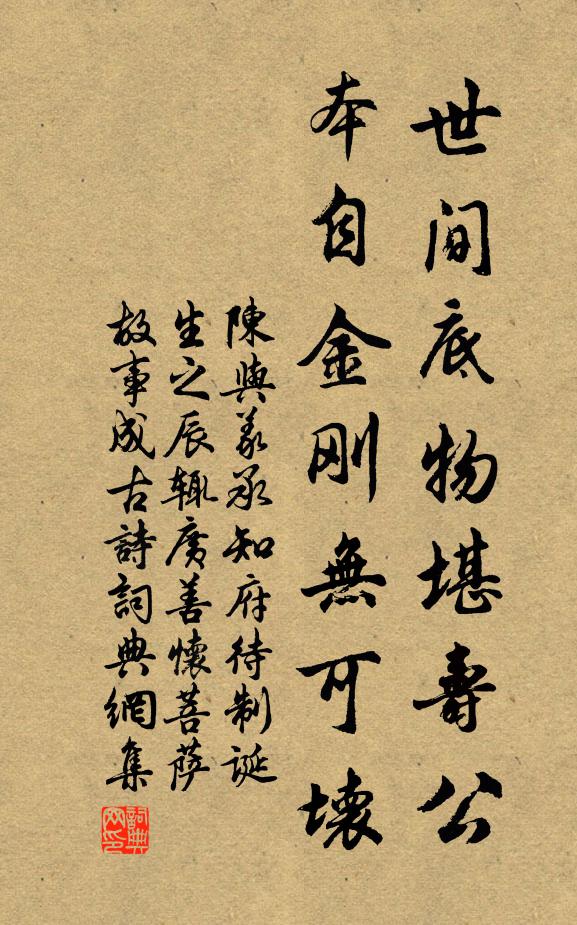 世間底物堪壽公
本自金刚無可壞
陳與義承知府待制誕
生之辰輒廣善懷菩薩
故事成古詩詞典網集
詞典网印